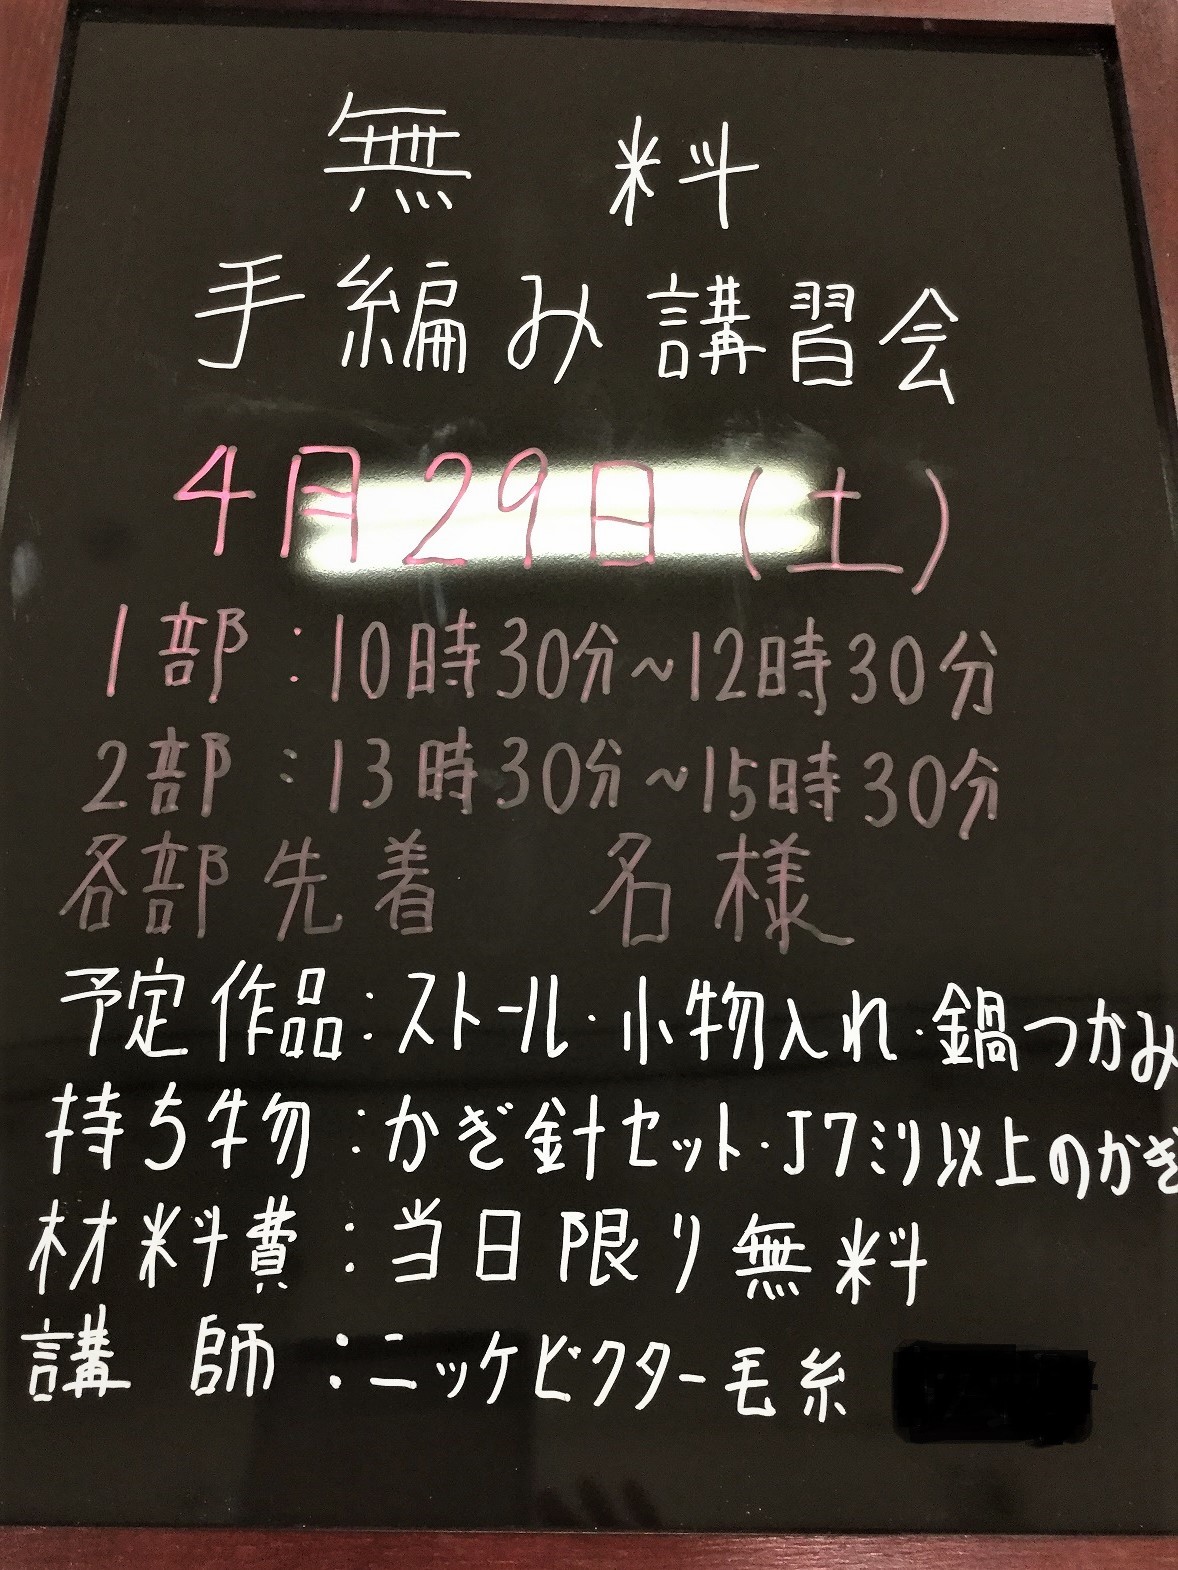 無料
手編み講習会
4月29日(土)
1部:10時30分~12時30分
2部:13時30分~15時30分
各部先着 名様
予定作品:ストール・小物入れ・鍋つかみ
持ち物:かぎ針セット・J7ミリ以上のかぎ
材料費:当日限り無料
講師:ニッケビクター毛糸